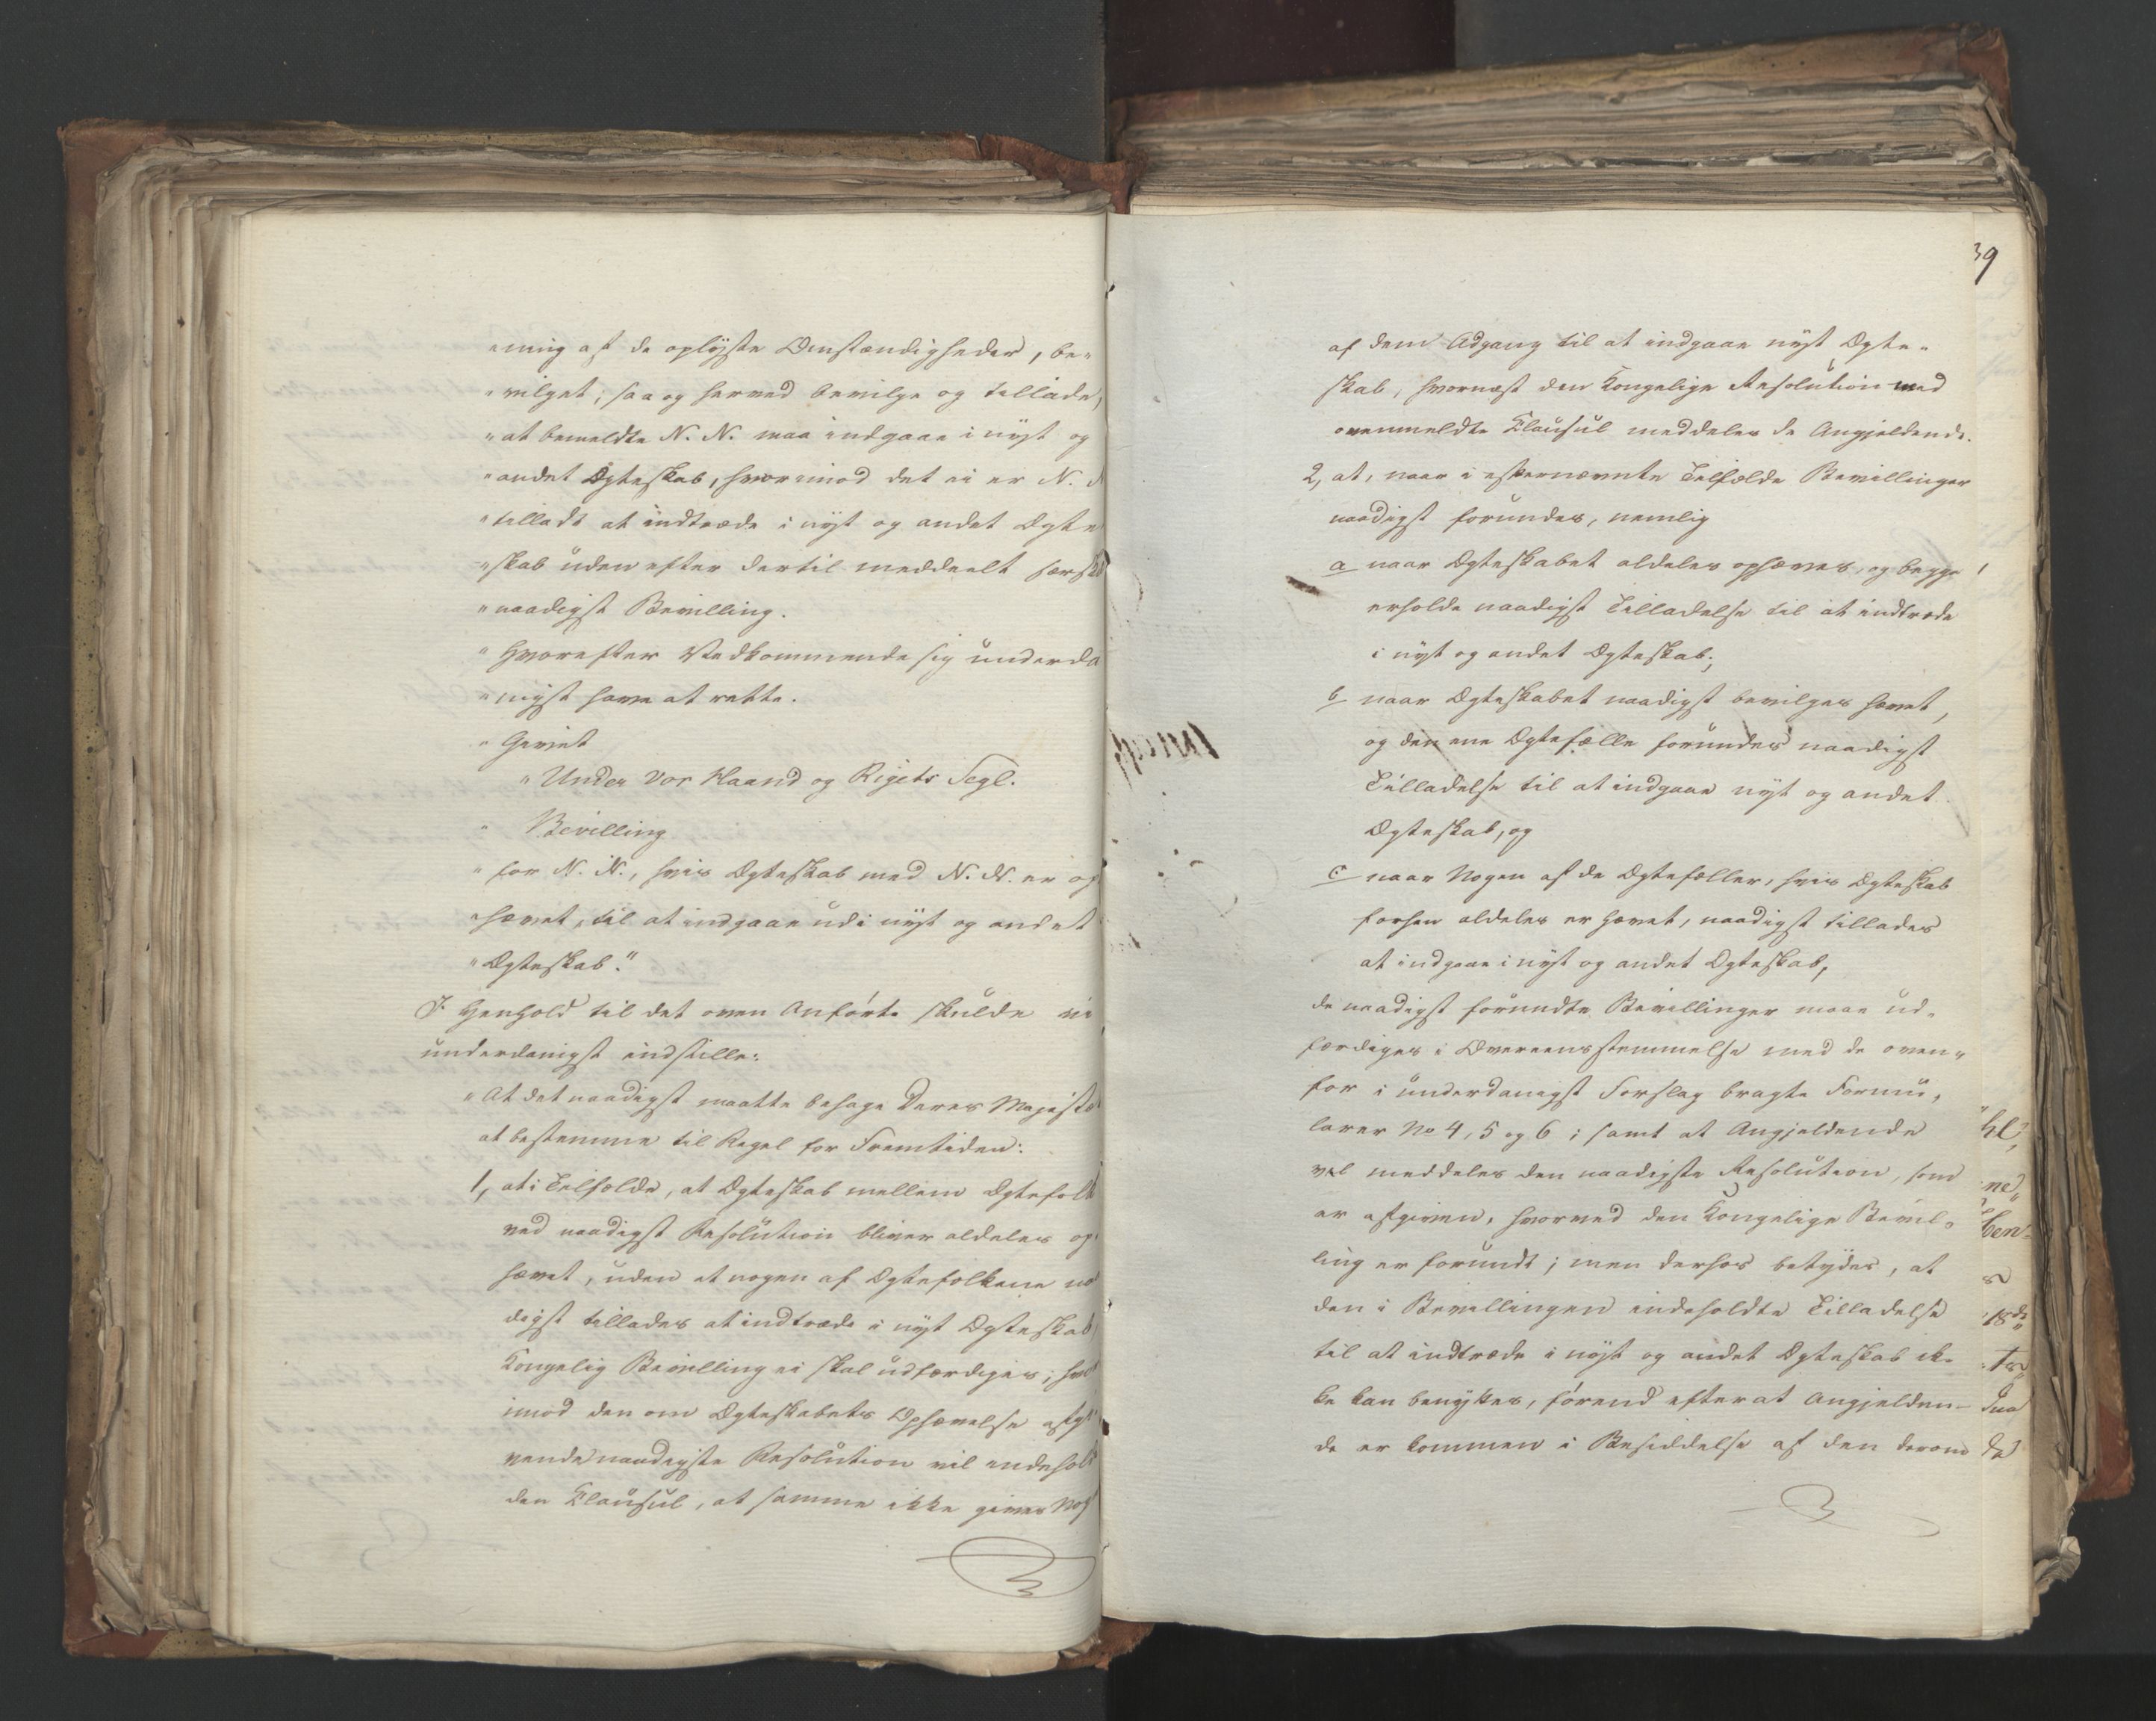 "ning af de oplyste Omstændigheder, be-
"vilget; saa og herved bevilge og tillade,
"at bemeldte N. N. maa indgaae i nyt og
"andet Ægteskab, hvorimod det ei er N.
"tilladt at indtræde i nyt og andet Ægte
"skab uden efter dertil meddeelt særsk
"naadigst Bevilling.
"Hvorefter Vedkommende sig underda
"nigst have at rette.
"Givet
"Under Vor Haand og Rigets Segl.
" Bevilling
"for N. N., hvis Ægteskab med N. N. er op
"hævet, til at indgaae udi nyt og andet
"Ægteskab."
I Henhold til det oven Anførte skulde vi
underdanigst indstille:
"At det naadigst maatte behage Deres Majestæ
at bestemme til Regel for Fremtiden:
1, at i Tilfælde, at Ægteskab mellem Ægtefolk
ved naadigst Resolution bliver aldeles op
hævet, uden at nogen af Ægtefolkene naa
digst tillades at indtræde i nyt Ægteskab,
Kongelig Bevilling ei skal udfærdiges; hvor
imod den om Ægteskabets Ophævelse afgi
vende naadigste Resolution vil indehold
den Clausul, at samme ikke giver Nog
39
af dem Adgang til at indgaae nyt Ægte-
skab, hvornæst den Kongelige Resolution med
ovenmeldte Clausul meddeles de Angjeldende.
2, at, naar i efternævnte Tilfælde Bevillinger
naadigst forundes, nemlig
a naar Ægteskabet aldeles ophæves, og begge
erholde naadigst Tilladelse til at indtræde
i nyt og andet Ægteskab;
b naar Ægteskabet naadigst bevilges hævet,
og den ene Ægtefælle forundes naadigst
Tilladelse til at indgaae nyt og andet
Ægteskab, og
c naar Nogen af de Ægtefæller, hvis Ægteskab
forhen aldeles er hævet, naadigst tillades
at indgaae i nyt og andet Ægteskab,
de naadigst forundte Bevillinger maae ud-
færdiges i Overeensstemmelse med de oven-
for i underdanigst Forslag bragte Formu-
larer No 4, 5 og 6; samt at Angjeldende
vel meddeles den naadigste Resolution, som
er afgiven, hvorved den Kongelige Bevil-
ling er forundt; men derhos betydes, at
den i Bevillingen indeholdte Tilladelse
til at indtræde i nyt og andet Ægteskab ik-
ke kan benyttes, førend efterat Angjelden-
de er kommen i Besiddelse af den derom